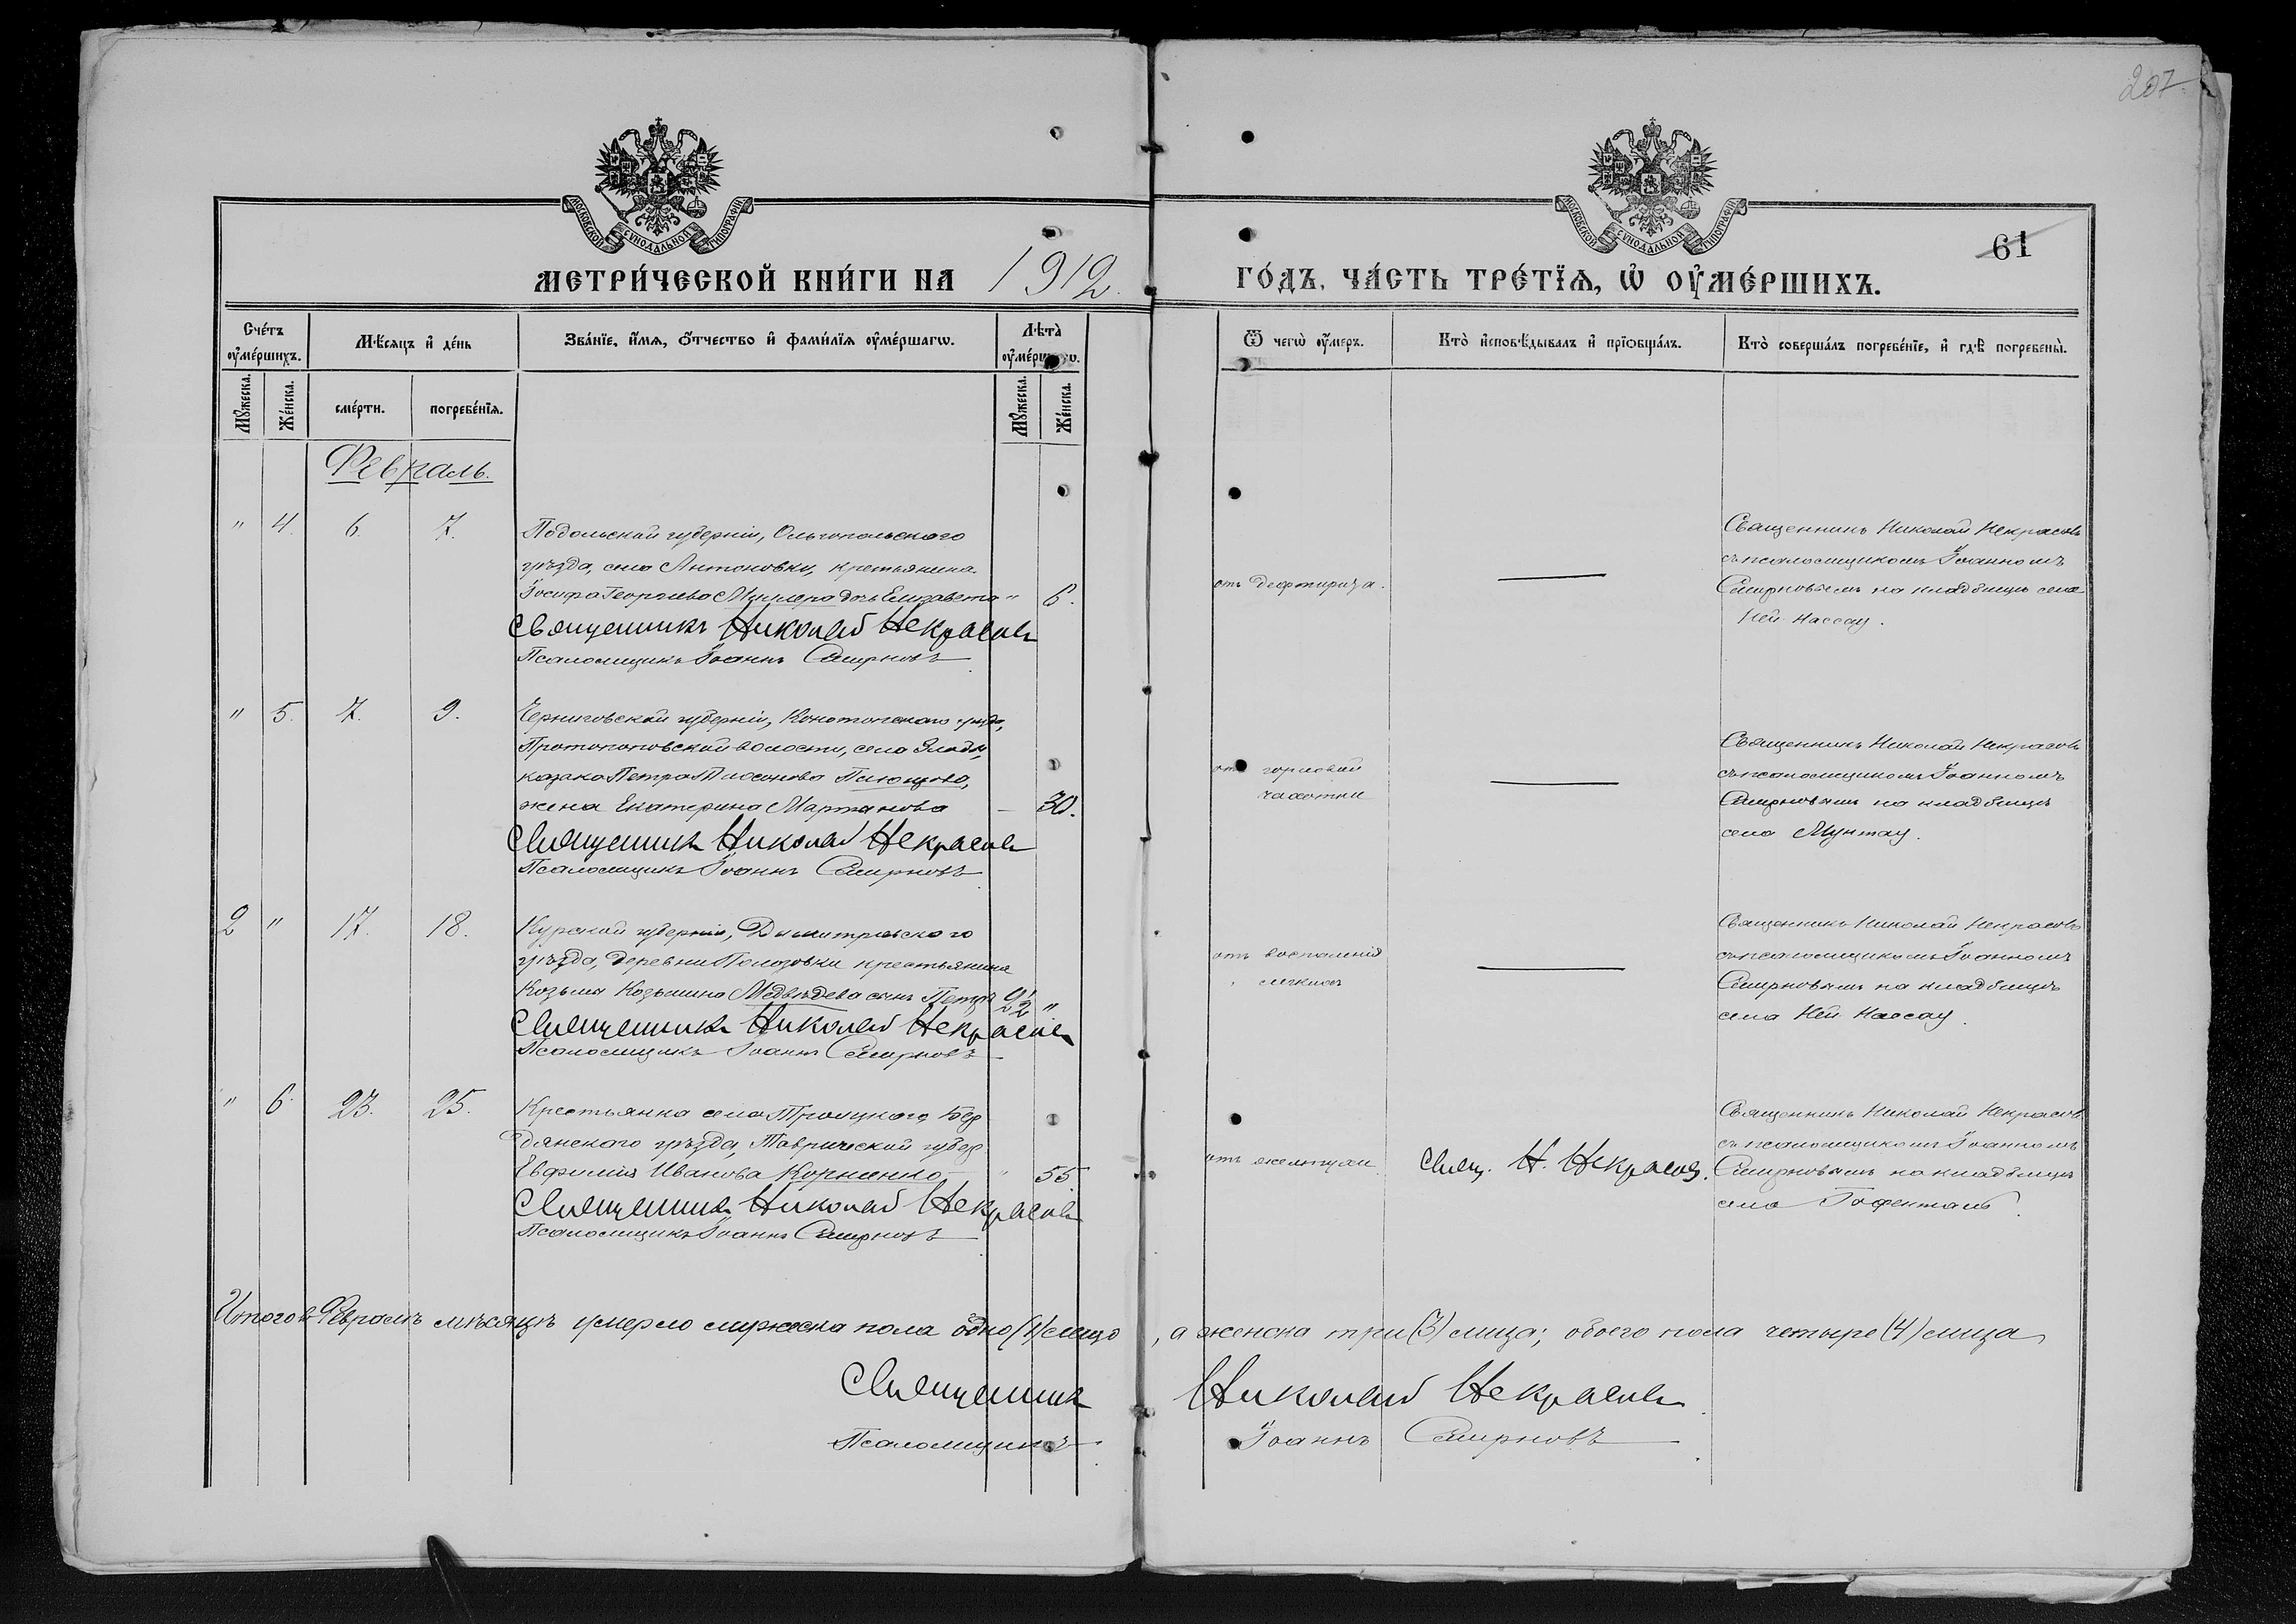 207
МОСКОВСКОЙ СѴНОДАЛЬНОЙ ТИПОГРАФІИ
МОСКОВСКОЙ СѴНОДАЛЬНОЙ ТИПОГРАФІИ
61
МЕТРИ́ЧЕСКОЙ КНИ́ГИ НА 1912 ГО́ДЪ, ЧА́СТЬ ТРЕ́ТІѦ, Ѡ҆ ОУ҆МЕ́РШИХЪ.
Сче́тъ оу҆ме́ршихъ.
Мѣ́сяцъ и҆ де́нь
Зва́нїе, и҆́мѧ, ѻ҆́тчество и҆ фами́лїѧ оу҆ме́ршагѡ.
Лѣ́та̀ оу҆ме́ршагѡ.
Ѿ чегѡ̀ оу҆́меръ.
Кто̀ и҆сповѣ́дывалъ и҆ прїѡбща́лъ.
Кто̀ соверша́лъ погребе́нїе, и҆ гдѣ̀ погребены̀.
Мꙋ́жеска.
Же́нска.
сме́рти.
погребе́нїѧ.
Мꙋ́жеска.
Же́нска.
Февраль.
" 4. 6. 7.
Подольской губерніи, Ольгопольского
уѣзда, села Антоновки, крестьянина
Іосифа Георгиева Миллера дочь Елизавета " 6.
Священникъ Николай Некрасовъ
Псаломщикъ Іоаннъ Смирновъ
отъ дефтирита.
Священникъ Николай Некрасовъ
съ псаломщикомъ Іоанномъ
Смирновымъ на кладбищѣ села
Ней-Нассау.
" 5. 7. 9.
Черниговской губерніи, Конотопского уѣзда,
Протопоповской волости, села
казака Петра
жена Екатерина Мартинова — 30.
Священникъ Николай Некрасовъ
Псаломщикъ Іоаннъ Смирновъ
отъ горловой
чахотки
Священникъ Николай Некрасовъ
съ псаломщикомъ Іоанномъ
Смирновымъ на кладбищѣ
села Мунтау.
2 " 17. 18.
Курской губерніи, Дмитровского
уѣзда, деревни Полозовки крестьянина
Козьмы Козьмина Медвѣдева сынъ Петръ "
Священникъ Николай Некрасовъ
Псаломщикъ Іоаннъ Смирновъ
отъ воспаленія
легкихъ
Священникъ Николай Некрасовъ
съ псаломщикомъ Іоанномъ
Смирновымъ на кладбищѣ
села Ней-Нассау.
" 6. 23. 25.
Крестьянка села Троицкого, Бер
дянского уѣзда, Таврической губер.
Евфимія Иванова Корниенко " 55
Священникъ Николай Некрасовъ
Псаломщикъ Іоаннъ Смирновъ
отъ желтухи
Свящ. Н. Некрасовъ.
Священникъ Николай Некрасовъ
съ псаломщикомъ Іоанномъ
Смирновымъ на кладбищѣ
села Гофенталь.
Итого въ Февралѣ мѣсяцѣ умерло мужеска пола одно (1) лицо, а женска три (3) лица; обоего пола четыре (4) лица
Священникъ Николай Некрасовъ
Псаломщикъ Іоаннъ Смирновъ